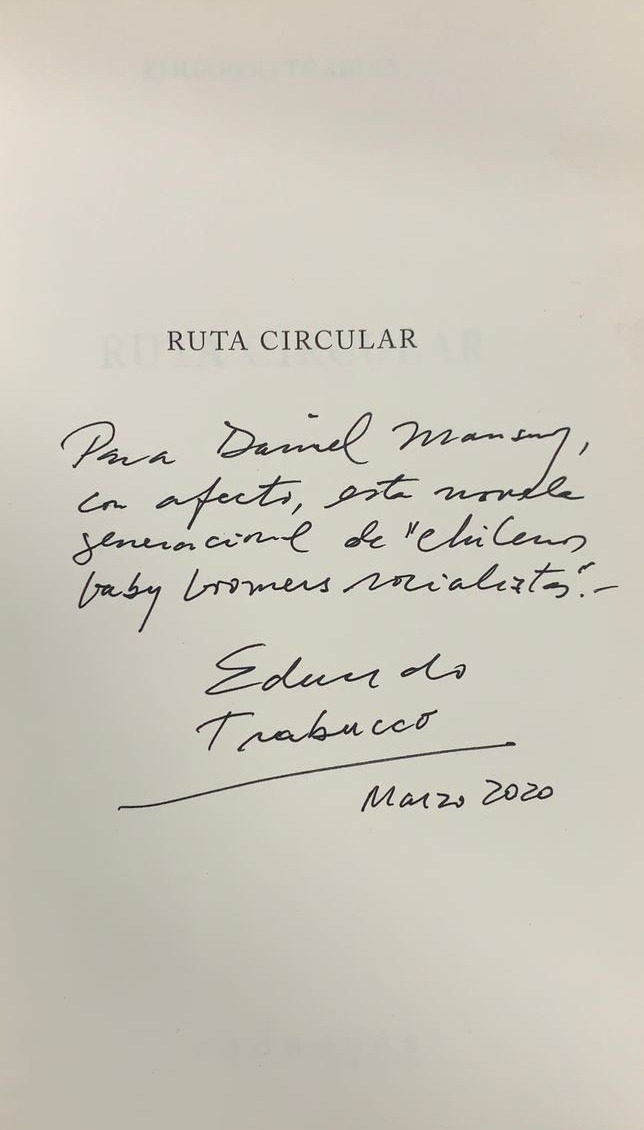 RUTA CIRCULAR
Para Daniel Mansuy,
con afecto, esta novela
generacional de "chilenos
baby boomers socialistas".-
Eduardo
Trabucco
Marzo 2020